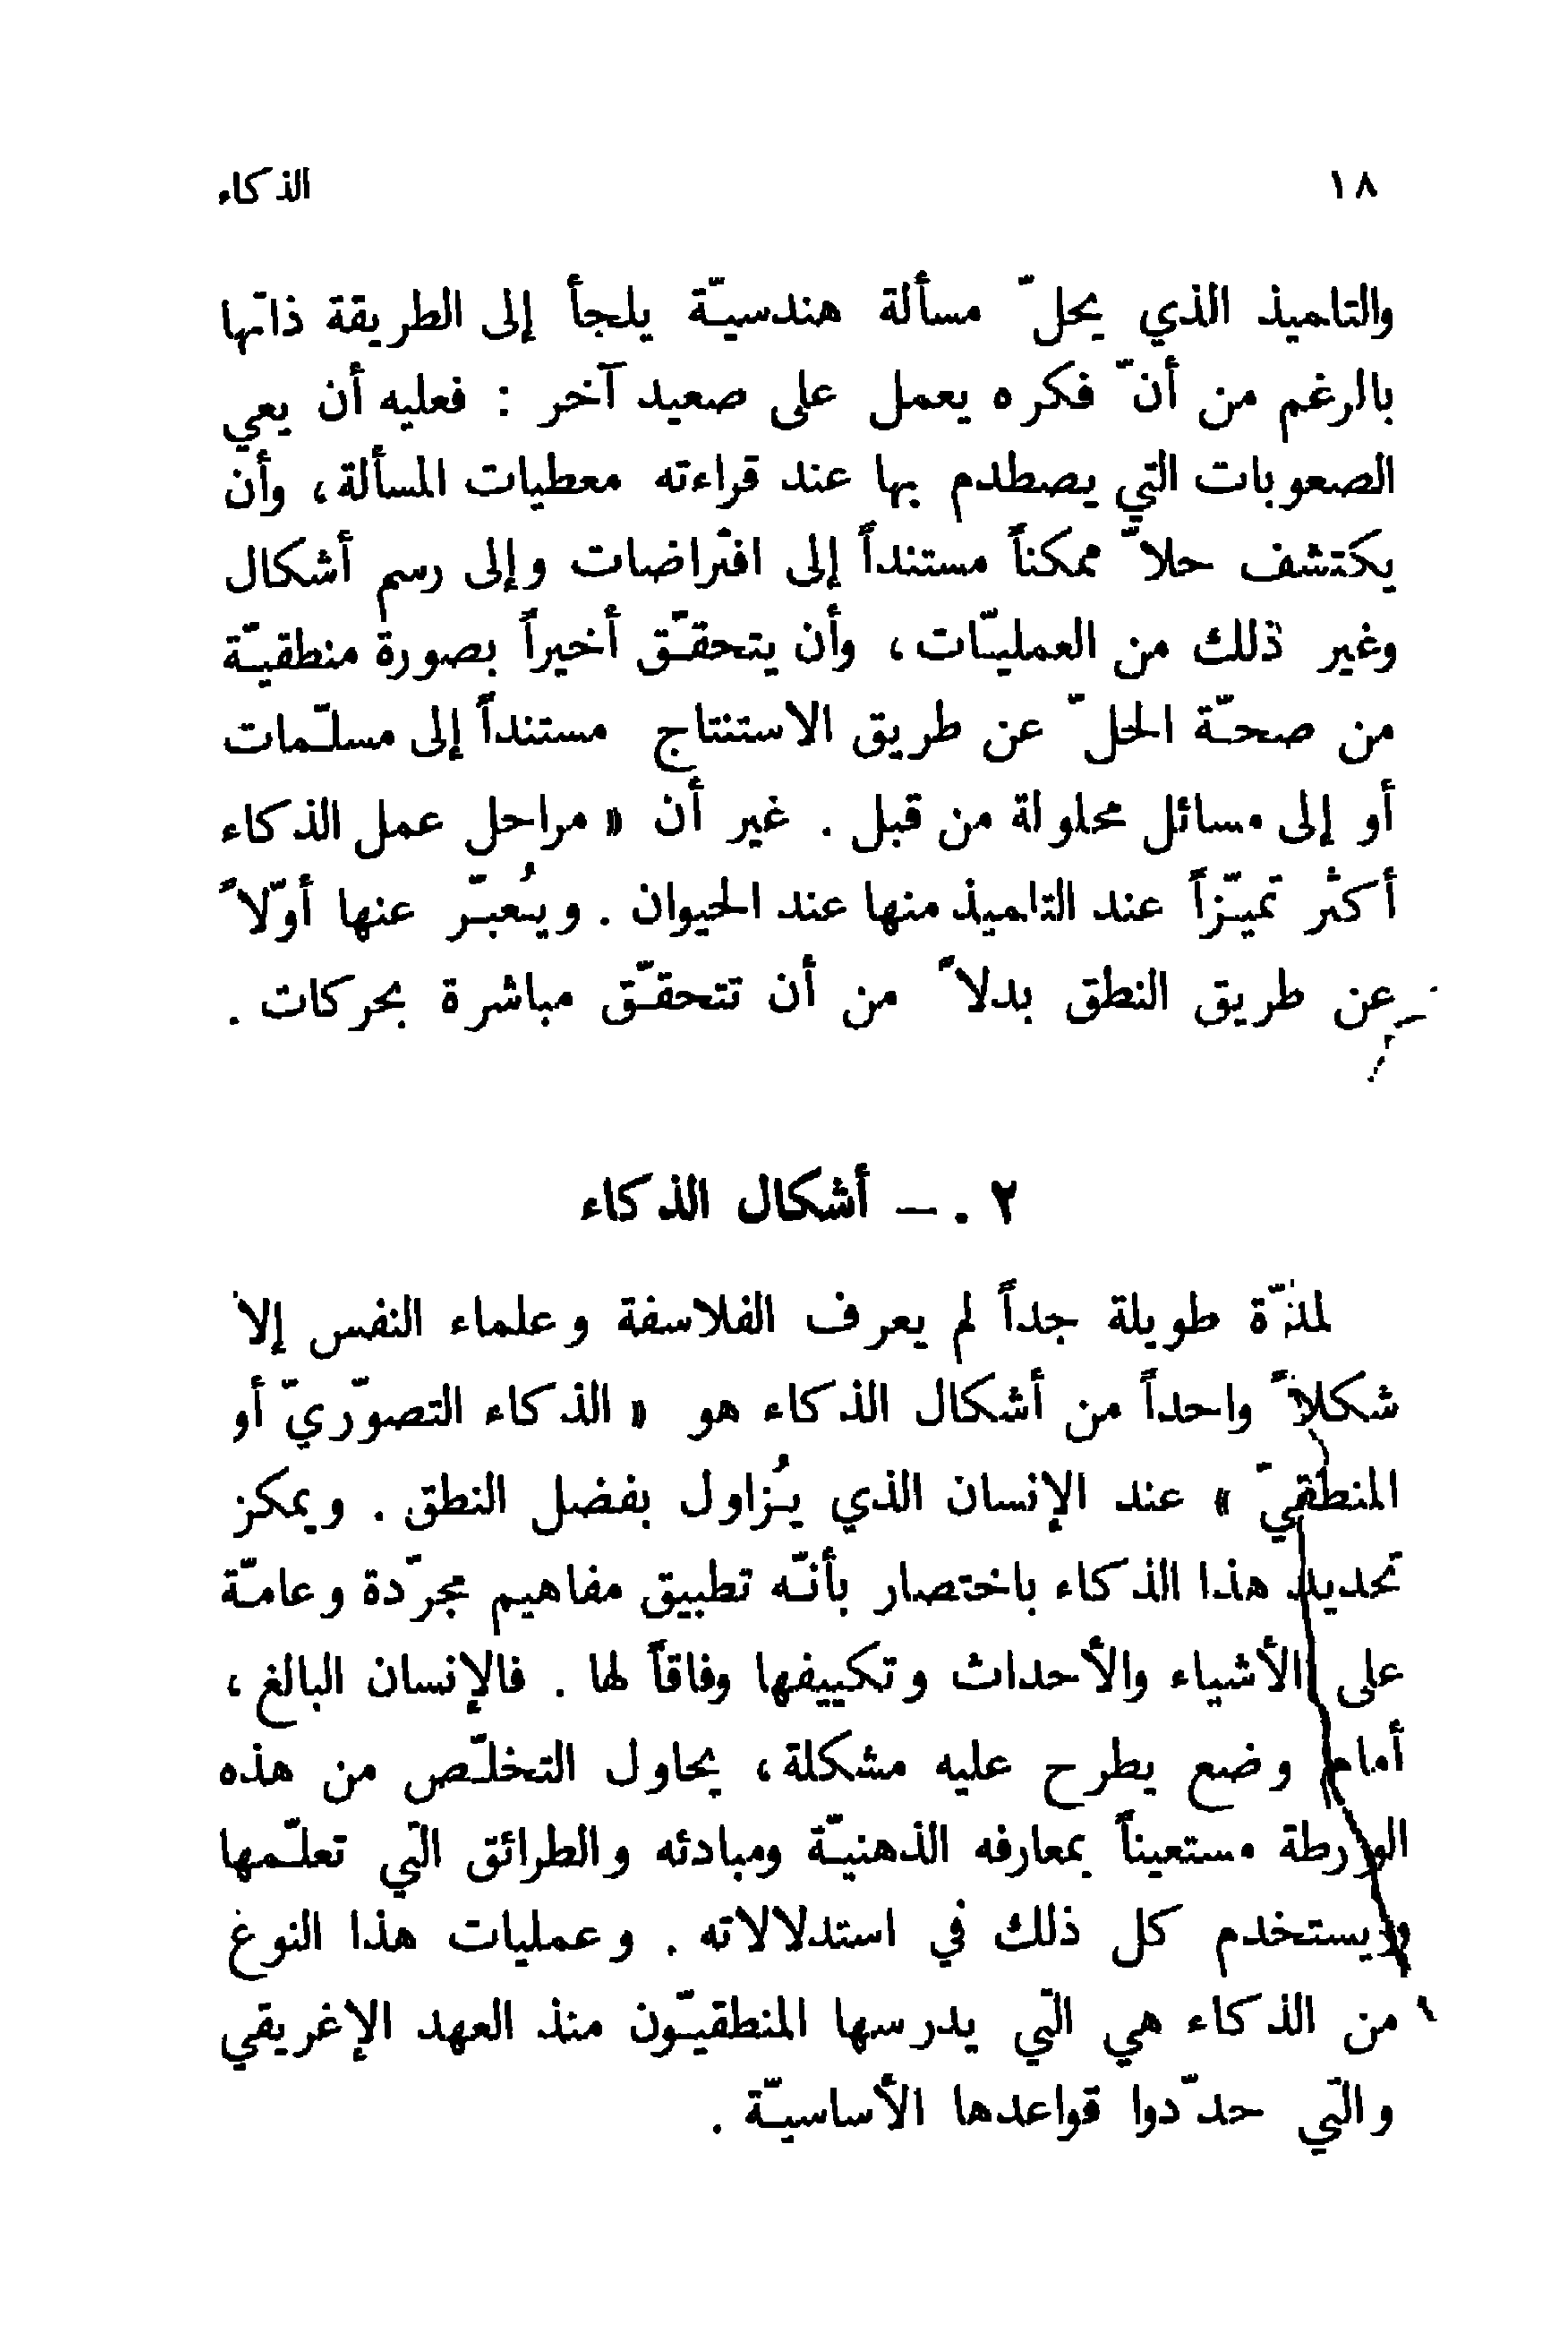 ١٨ الذكاء
والتلميذ الذي يحلّ مسألة هندسيّة يلجأ إلى الطريقة ذاتها
بالرغم من أنّ فكره يعمل على صعيد آخر : فعليه أن يعي
الصعوبات التي يصطدم بها عند قراءته معطيات المسألة ، وأن
يكتشف حلاّ ممكناً مستنداً إلى افتراضات وإلى رسم أشكال
وغير ذلك من العمليّات ، وأن يتحقّق أخيراً بصورة منطقيّة
من صحّة الحلّ عن طريق الاستنتاج مستنداً إلى مسلّمات
أو إلى مسائل محلولة من قبل . غير أن « مراحل عمل الذكاء
أكثر تميّزاً عند التلميذ منها عند الحيوان . ويُعبّر عنها أوّلاً
عن طريق النطق بدلاً من أن تتحقّق مباشرة بحركات .
٢ . — أشكال الذكاء
لمدّة طويلة جداً لم يعرف الفلاسفة وعلماء النفس إلا
شكلاً واحداً من أشكال الذكاء هو « الذكاء التصوّريّ أو
المنطقيّ » عند الإنسان الذي يُزاول بفضل النطق . ويمكن
تحديد هذا الذكاء باختصار بأنّه تطبيق مفاهيم مجرّدة وعامّة
على الأشياء والأحداث وتكييفها وفاقاً لها . فالإنسان البالغ ،
أمام وضع يطرح عليه مشكلة ، يحاول التخلّص من هذه
الورطة مستعيناً بمعارفه الذهنيّة ومبادئه والطرائق التي تعلّمها
ويستخدم كل ذلك في استدلالاته . وعمليات هذا النوع
من الذكاء هي التي يدرسها المنطقيّون منذ العهد الإغريقي
والتي حدّدوا قواعدها الأساسيّة .